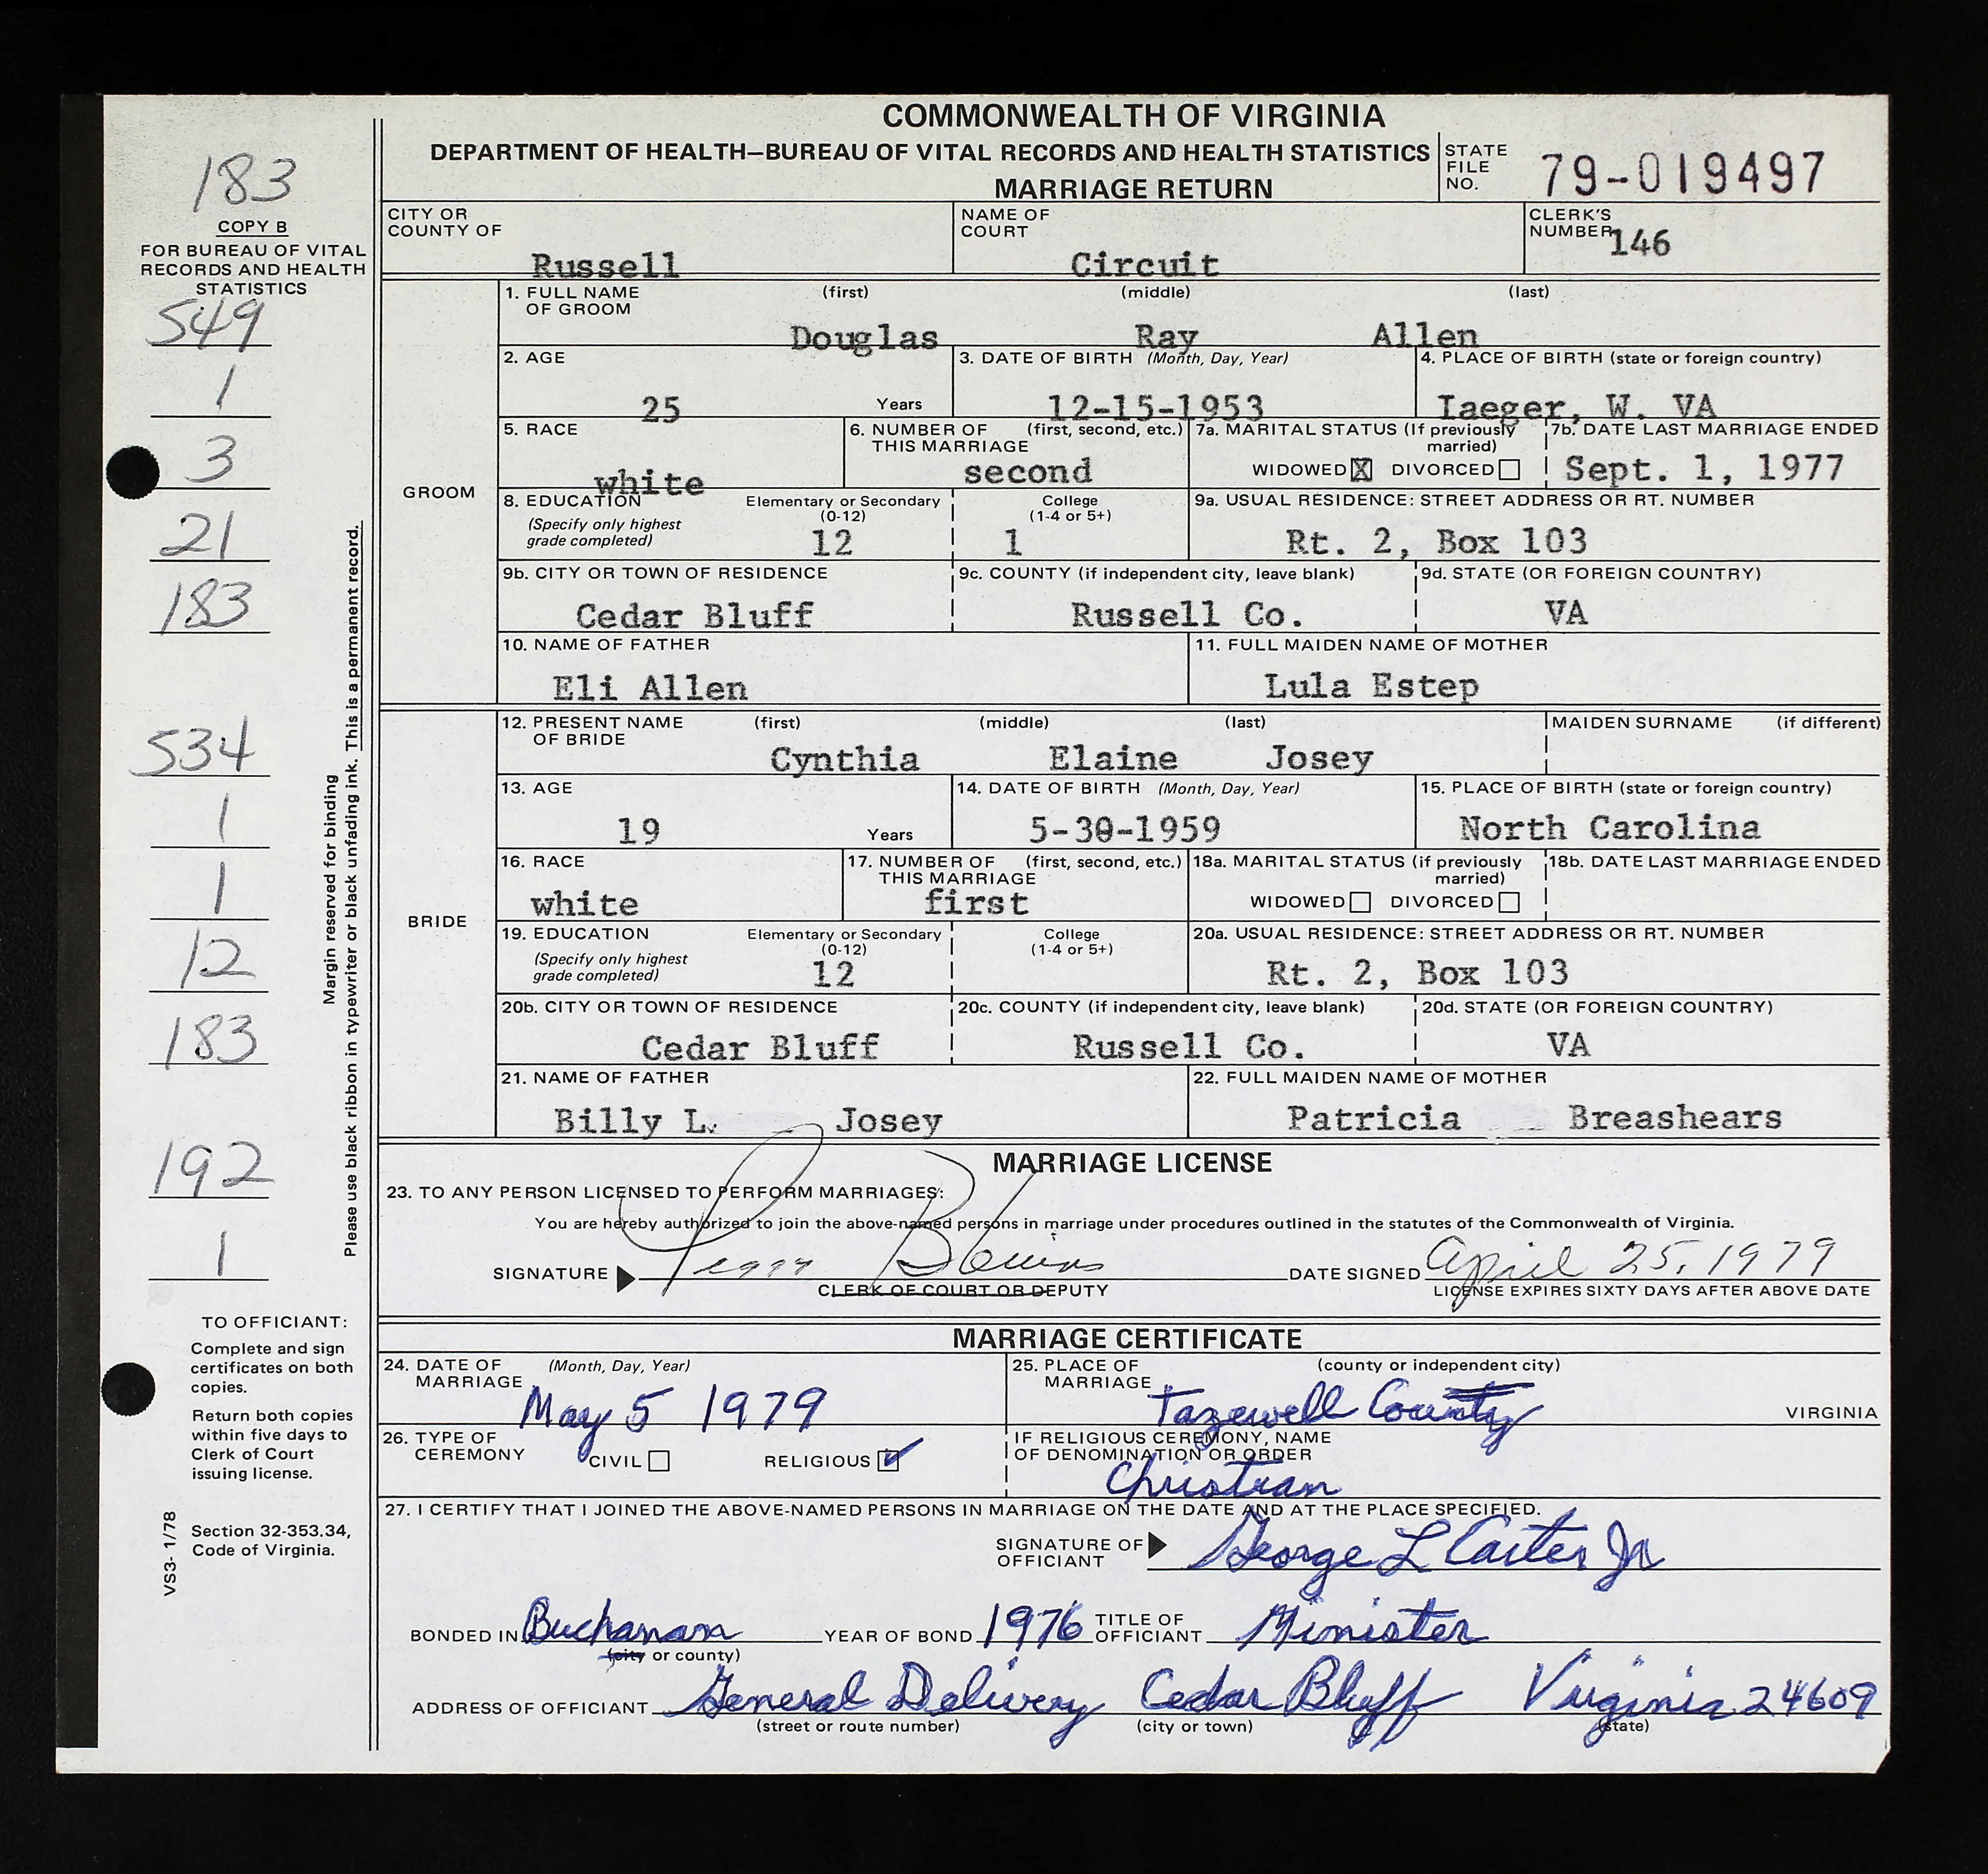 COMMONWEALTH OF VIRGINIA
DEPARTMENT OF HEALTH—BUREAU OF VITAL RECORDS AND HEALTH STATISTICS
MARRIAGE RETURN
STATE FILE NO. 79-019497
183
COPY B
FOR BUREAU OF VITAL
RECORDS AND HEALTH
STATISTICS
549
1
3
21
183
534
1
1
12
183
192
1
Margin reserved for binding
Please use black ribbon in typewriter or black unfading ink. This is a permanent record.
TO OFFICIANT:
Complete and sign
certificates on both
copies.
Return both copies
within five days to
Clerk of Court
issuing license.
Section 32-353.34,
Code of Virginia.
VS3- 1/78
CITY OR COUNTY OF Russell
NAME OF COURT Circuit
CLERK'S NUMBER 146
GROOM
1. FULL NAME OF GROOM (first) (middle) (last)
Douglas Ray Allen
2. AGE 25 Years
3. DATE OF BIRTH (Month, Day, Year) 12-15-1953
4. PLACE OF BIRTH (state or foreign country) Iaeger, W. VA
5. RACE white
6. NUMBER OF THIS MARRIAGE (first, second, etc.) second
7a. MARITAL STATUS (If previously married) WIDOWED X DIVORCED
7b. DATE LAST MARRIAGE ENDED Sept. 1, 1977
8. EDUCATION (Specify only highest grade completed) Elementary or Secondary (0-12) 12 College (1-4 or 5+) 1
9a. USUAL RESIDENCE: STREET ADDRESS OR RT. NUMBER Rt. 2, Box 103
9b. CITY OR TOWN OF RESIDENCE Cedar Bluff
9c. COUNTY (if independent city, leave blank) Russell Co.
9d. STATE (OR FOREIGN COUNTRY) VA
10. NAME OF FATHER Eli Allen
11. FULL MAIDEN NAME OF MOTHER Lula Estep
BRIDE
12. PRESENT NAME OF BRIDE (first) (middle) (last) MAIDEN SURNAME (if different)
Cynthia Elaine Josey
13. AGE 19 Years
14. DATE OF BIRTH (Month, Day, Year) 5-30-1959
15. PLACE OF BIRTH (state or foreign country) North Carolina
16. RACE white
17. NUMBER OF THIS MARRIAGE (first, second, etc.) first
18a. MARITAL STATUS (if previously married) WIDOWED DIVORCED
18b. DATE LAST MARRIAGE ENDED
19. EDUCATION (Specify only highest grade completed) Elementary or Secondary (0-12) 12 College (1-4 or 5+)
20a. USUAL RESIDENCE: STREET ADDRESS OR RT. NUMBER Rt. 2, Box 103
20b. CITY OR TOWN OF RESIDENCE Cedar Bluff
20c. COUNTY (if independent city, leave blank) Russell Co.
20d. STATE (OR FOREIGN COUNTRY) VA
21. NAME OF FATHER Billy L. Josey
22. FULL MAIDEN NAME OF MOTHER Patricia Breashears
MARRIAGE LICENSE
23. TO ANY PERSON LICENSED TO PERFORM MARRIAGES:
You are hereby authorized to join the above-named persons in marriage under procedures outlined in the statutes of the Commonwealth of Virginia.
SIGNATURE Peggy Blevins DATE SIGNED April 25, 1979
CLERK OF COURT OR DEPUTY LICENSE EXPIRES SIXTY DAYS AFTER ABOVE DATE
MARRIAGE CERTIFICATE
24. DATE OF MARRIAGE (Month, Day, Year) May 5 1979
25. PLACE OF MARRIAGE (county or independent city) Tazewell County VIRGINIA
26. TYPE OF CEREMONY CIVIL RELIGIOUS ✓
IF RELIGIOUS CEREMONY, NAME OF DENOMINATION OR ORDER Christian
27. I CERTIFY THAT I JOINED THE ABOVE-NAMED PERSONS IN MARRIAGE ON THE DATE AND AT THE PLACE SPECIFIED.
SIGNATURE OF OFFICIANT George L Carter Jr
BONDED IN Buchanan YEAR OF BOND 1976 TITLE OF OFFICIANT Minister
(city or county)
ADDRESS OF OFFICIANT General Delivery Cedar Bluff Virginia 24609
(street or route number) (city or town) (state)